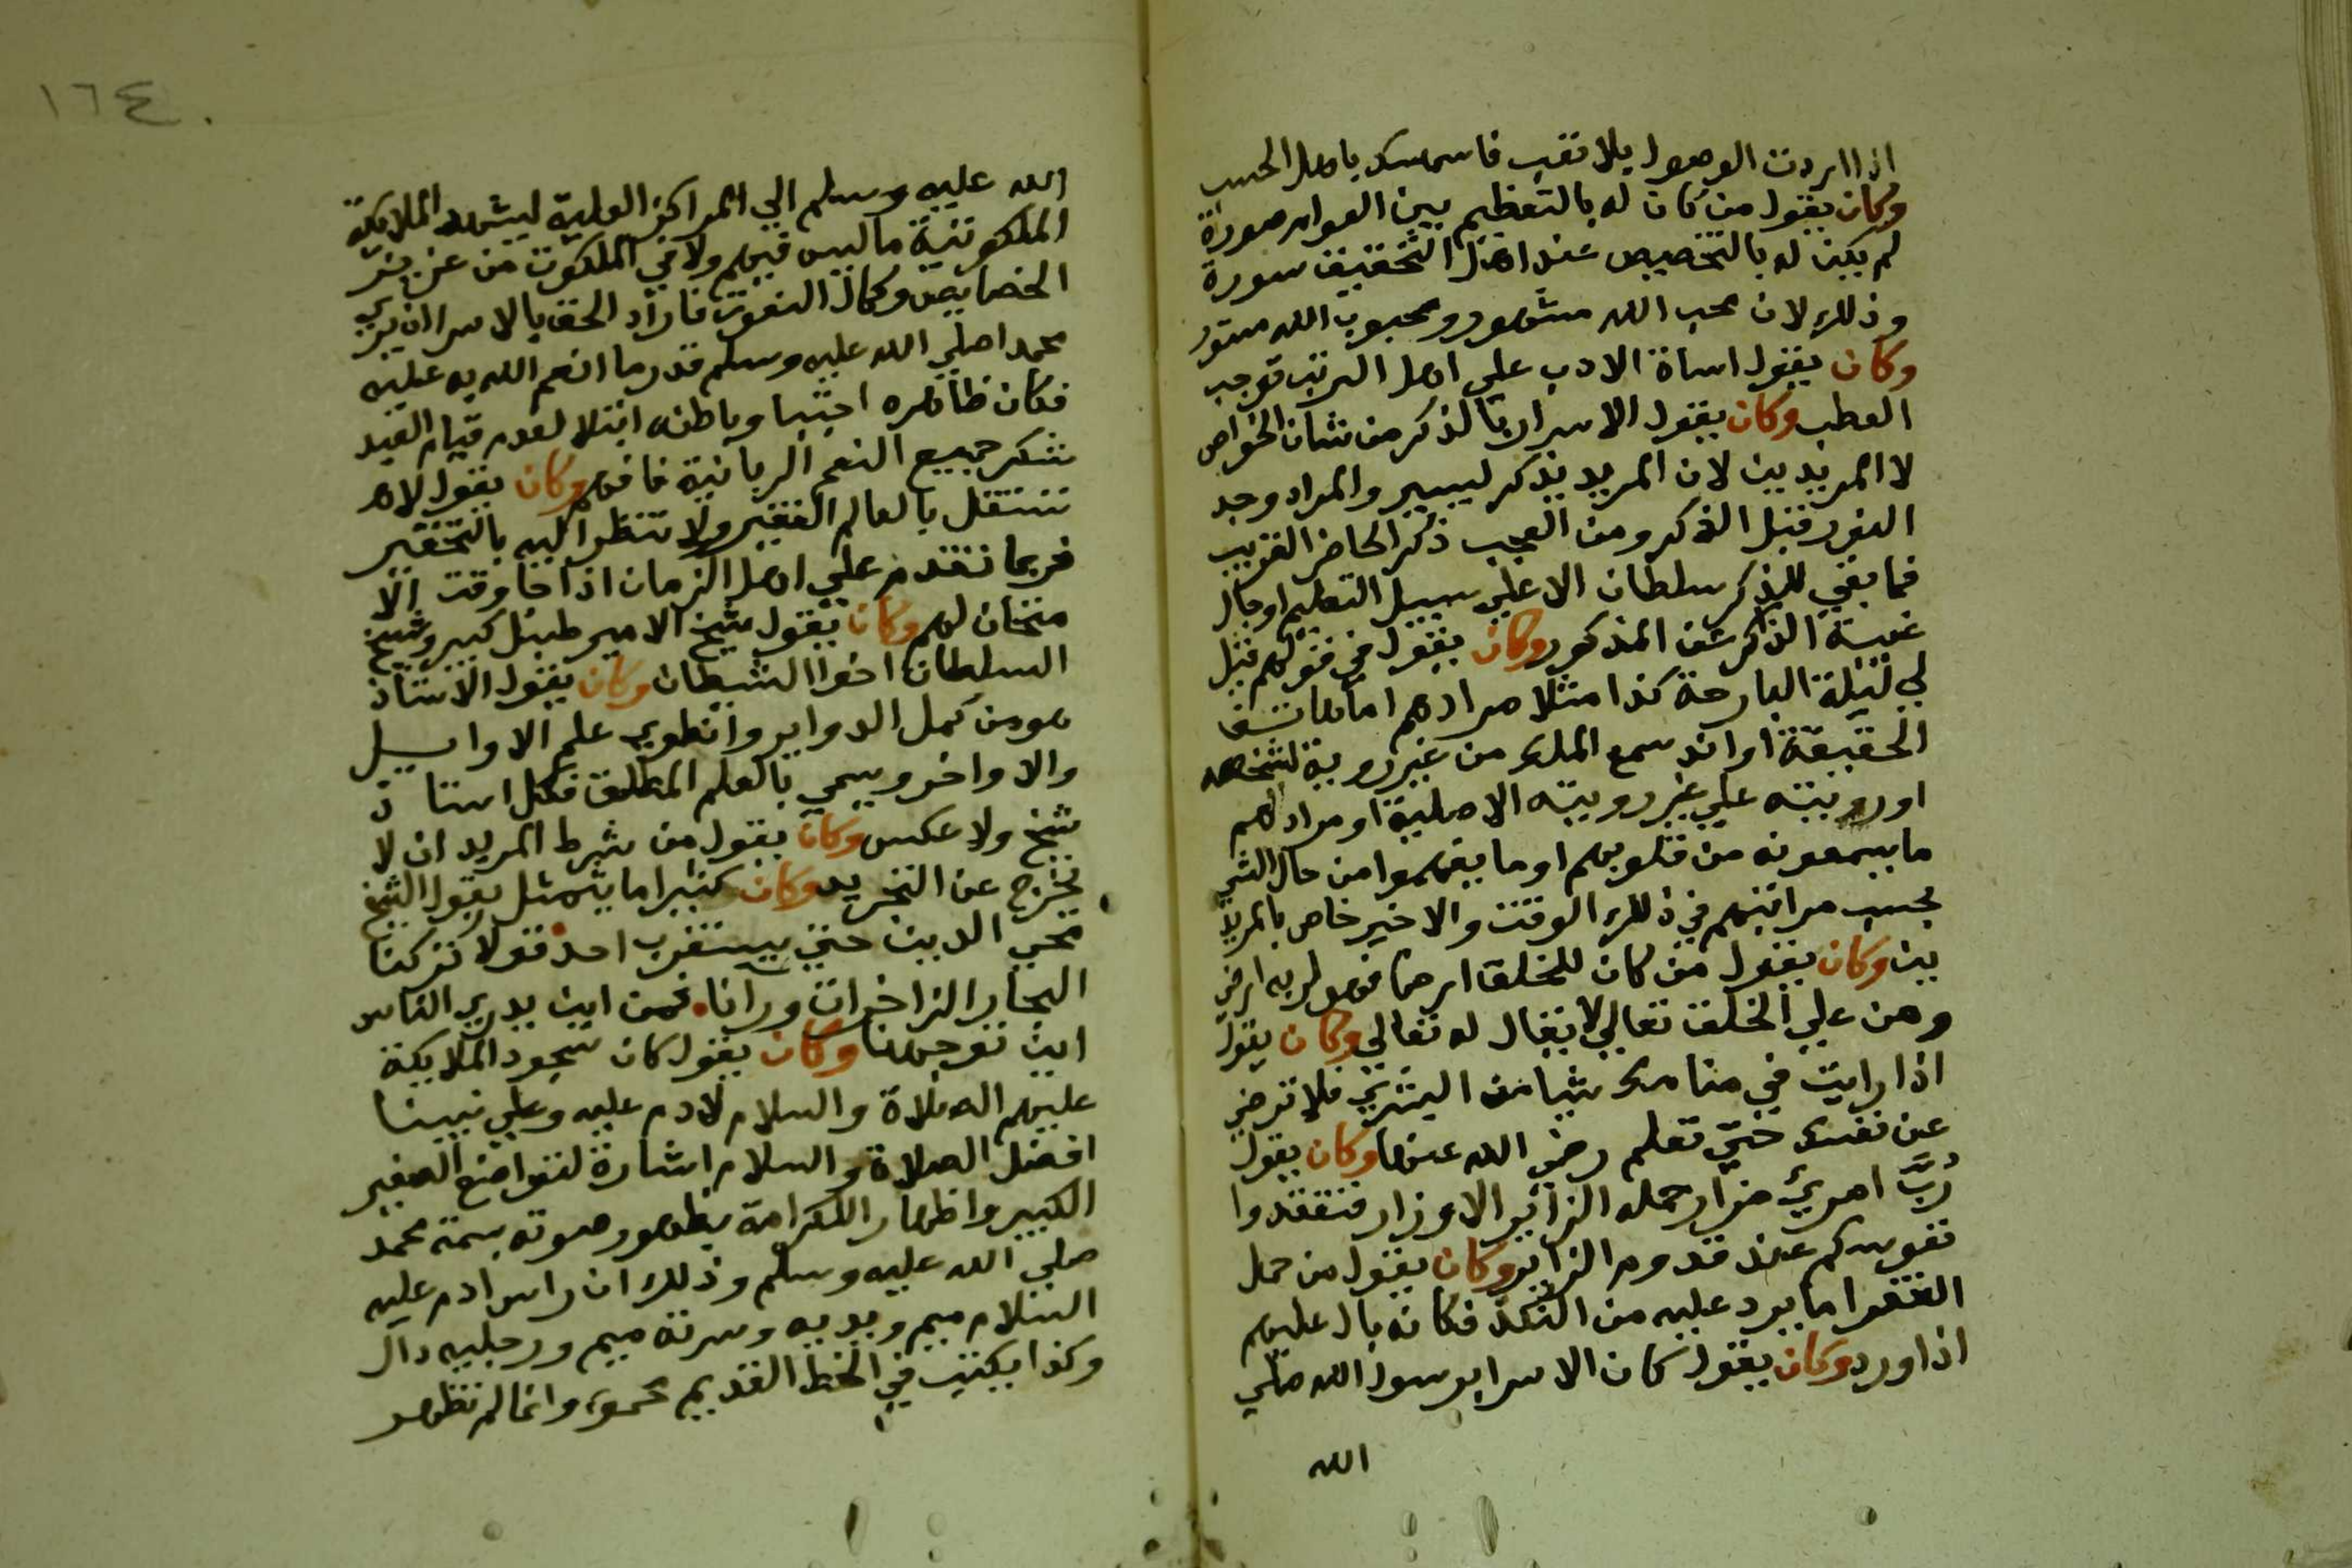 اذا اردت الوصول بلا تعب فاستمسك باهل الحسب
وكان يقول من كان له بالتعظيم بين العوام صورة
لم يكن له بالتخصيص عند اهل التحقيق سورة
وذلك لان محب الله مشهور ومحبوب الله مستور
وكان يقول اساة الادب على اهل الرتب توجب
العطب وكان يقول الاسرار بالذكر من شان الخواص
لا المريدين لان المريد يذكر ليسير والمراد وجد
النور قبل الذكر ومن العجب ذكر الحاضر القريب
فما بقي للذكر سلطان الا علي سبيل التعليم او حال
غيبة الذاكر عن المذكور وكان يقول في قولهم قيل
لي ليلة البارحة كذا مثلا مرادهم اما هاتف
الحقيقة او انه سمع الملك من غير روية لشخصه
او رويته علي غير رويته الاصلية او مرادهم
ما يسمعونه من قلوبهم او ما يفهموا من حال الشي
بحسب مراتبهم في ذلك الوقت والاخير خاص بالمريد
ين وكان يقول من كان للخلق ارضا فهو لربه ارضي
ومن علي الخلق تعالي لا يقال له تعالي وكان يقول
اذا رايت في منامك شيا من البشري فلا ترضي
عن نفسك حتي تعلم رضي الله عنها وكان يقول
رُبَّ امريء مزار حمله الزائر الاوزار فتفقدوا
نفوسكم عند قدوم الزائر وكان يقول من حمل
الفقرا ما يرد عليه من النكد فكانه بال عليهم
اذا ورد وكان يقول كان الاسرا برسول الله صلي
الله
١٦٤
الله عليه وسلم الي المراكز العلية ليشهد الملايكة
الملكوتية ما ليس فيهم ولا في الملكوت من عزيز
الخصايص وكمال النعوت فاراد الحق بالاسرا ان يري
محمدا صلي الله عليه وسلم قدر ما انعم الله به عليه
فكان ظاهره اجتبا وباطنه ابتلا لعدم قيام العبد
بشكر جميع النعم الربانية فافهم وكان يقول لا
تستقل بالعالم الفقير ولا تنظر اليه بالتحقير
فربما تقدم علي اهل الزمان اذا جا وقت الا
متحان لهم وكان يقول شيخ الامير طبل كبير وشيخ
السلطان اخوا الشيطان وكان يقول الاستاذ
هو من كمل الدواير وانطوي علم الاوايل
والاواخر وسمي بالعلم المطلق فكل استاذ
شيخ ولا عكس وكان يقول من شرط المريد ان لا
يخرج عن التجريد وكان كثيرا ما يتمثل بقول الشيخ
محي الدين حتي يستقرب احد قولا تركنا
البحار الزاخرات ورانا فمن اين يدري الناس
اين توجهنا وكان يقول كان سجود الملايكة
عليهم الصلاة والسلام لادم عليه وعلي نبينا
افضل الصلاة والسلام اشارة لتواضع الصغير
الكبير واظهار الكرامة بظهور صوته بسمة محمد
صلي الله عليه وسلم وذلك ان راس ادم عليه
السلام ميم ويديه وسرته ميم ورجليه دال
وكذا يكتب في الخط القديم وانما لم تظهر